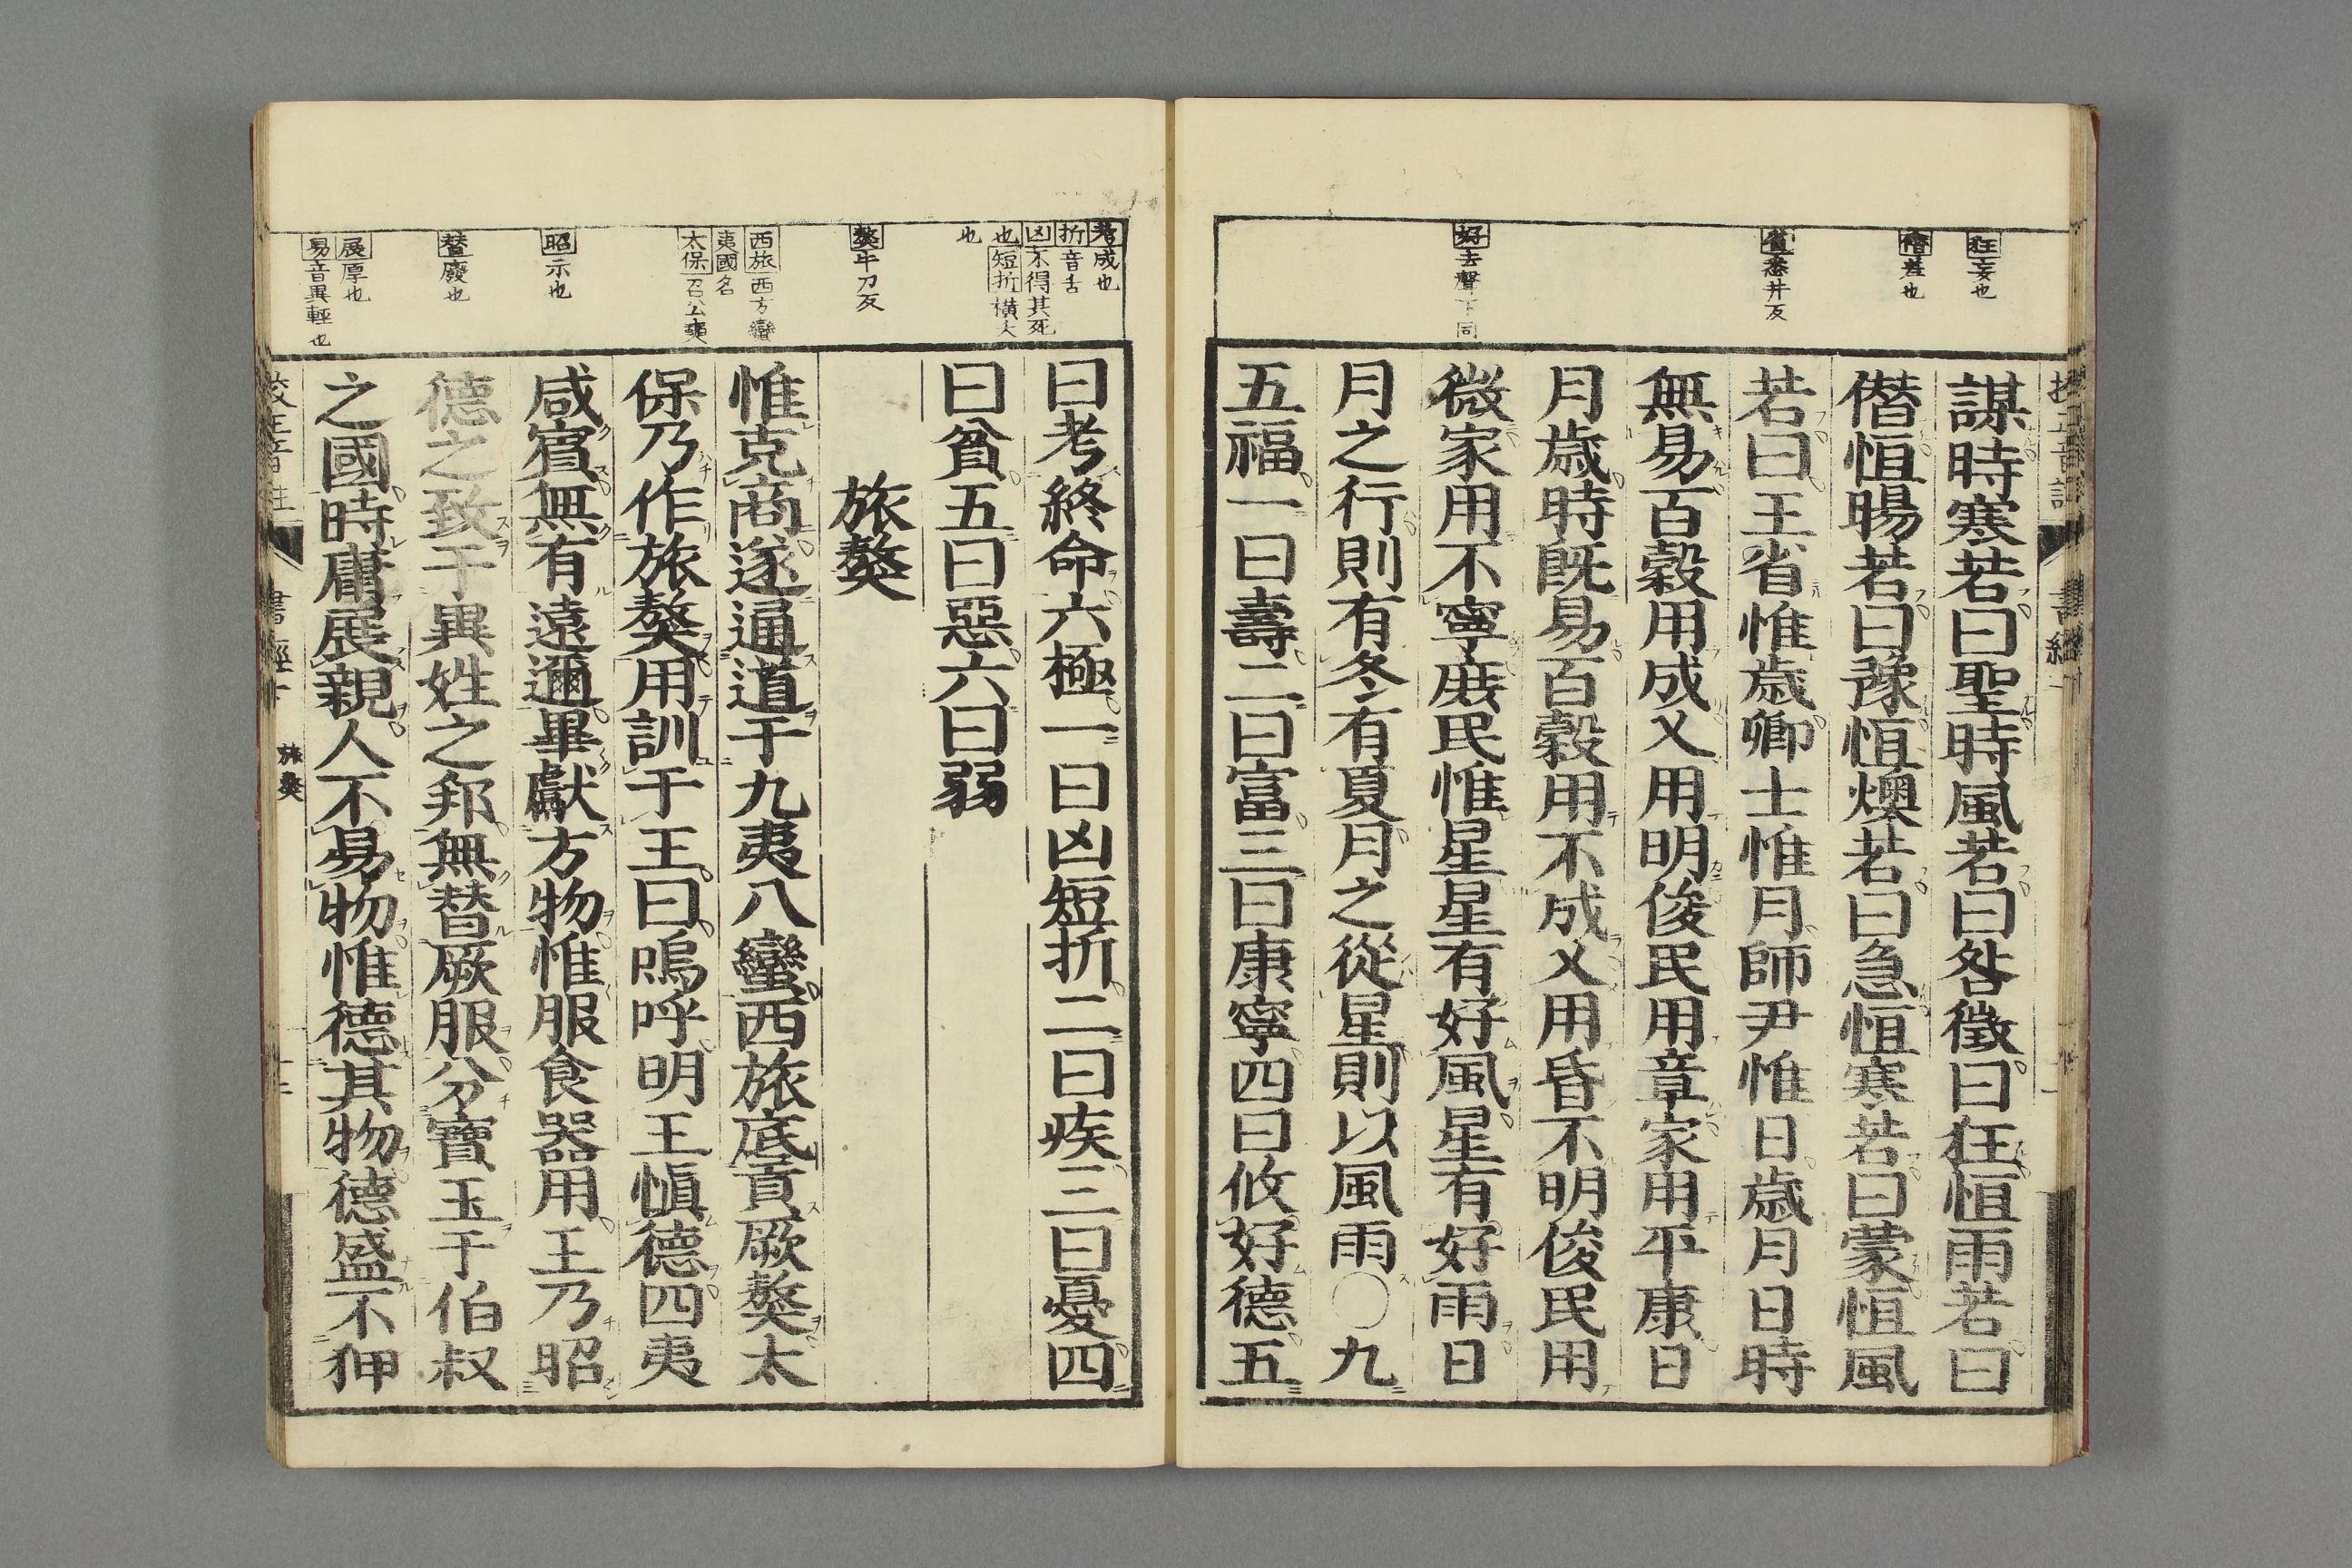 狂妄也
僭差也
省悉井反
好去聲下同
謀時寒若曰聖時風若曰咎徵曰狂恒雨若曰
僭恒暘若曰豫恒燠若曰急恒寒若曰蒙恒風
若曰王省惟歲卿士惟月師尹惟日歲月日時
無易百穀用成乂用明俊民用章家用平康日
月歲時旣易百穀用不成乂用昏不明俊民用
微家用不寧庻民惟星星有好風星有好雨日
月之行則有冬有夏月之從星則以風雨〇九
五福一曰壽二曰富三曰康寧四曰攸好德五
考成也
折音舌
凶不得其死
也短折橫夭
也
獒牛刀反
西旅西方蠻
夷國名
太保召公奭
昭示也
替廢也
展厚也
易音異輕也
曰考終命六極一曰凶短折二曰疾三曰憂四
曰貧五曰惡六曰弱
旅獒
惟克商遂通道于九夷八蠻西旅底貢厥獒太
保乃作旅獒用訓于王曰嗚呼明王愼德四夷
咸賓無有遠邇畢獻方物惟服食器用王乃昭
德之致于異姓之邦無替厥服分寶玉于伯叔
之國時庸展親人不易物惟德其物德盛不狎
校正音註 書經下 旅獒 十二